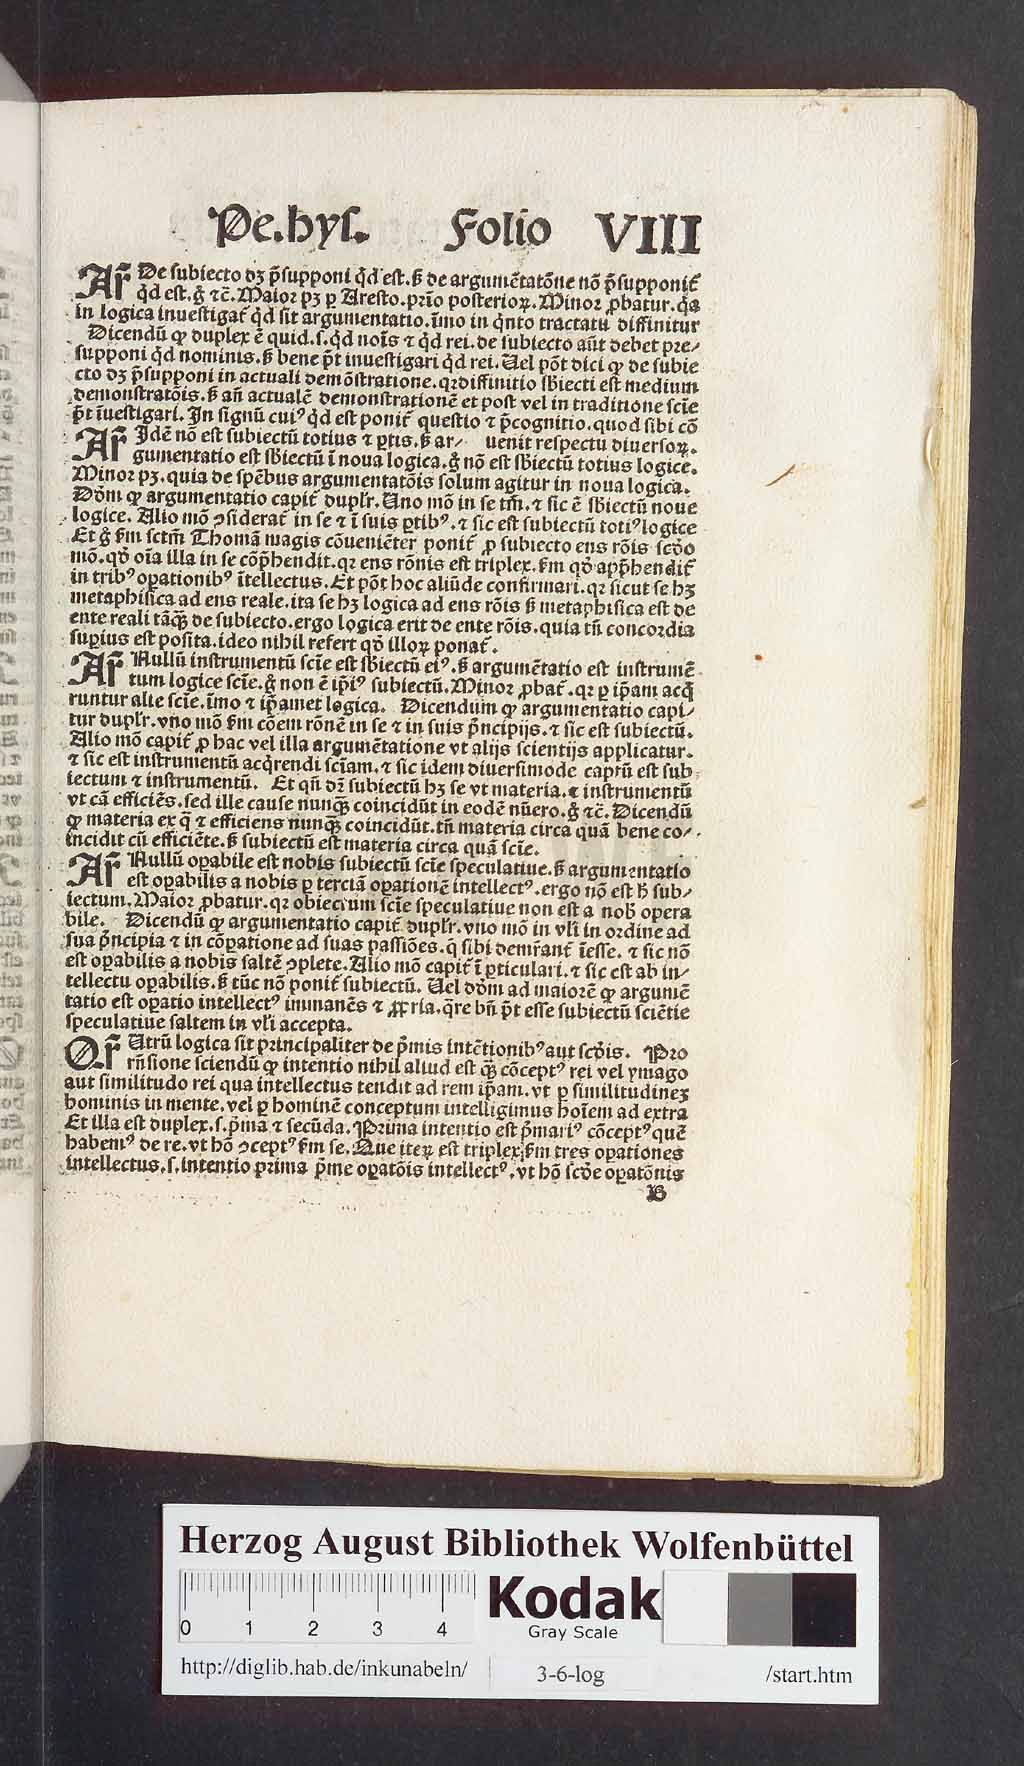 Pe.hys. Folio VIII
Ar̃ De subiecto dʒ p̃supponi qd̛ est. sꝫ de argumẽtatõne nõ p̃supponit̃
qd̛ est. g̊ ⁊c̃. Maior pʒ ꝑ Aresto. prĩo posterioꝝ. Minor ꝓbatur. q̃a
in logica inuestigat̃ qd̛ sit argumentatio. ĩmo in q̃nto tractatu diffinitur
Dicendũ ꝙ duplex ẽ quid. s. qd̛ noĩs ⁊ qd̛ rei. de subiecto aũt debet pre-
supponi qd̛ nominis. sꝫ bene p̃t inuestigari qd̛ rei. Uel põt dici ꝙ de subie
cto dʒ p̃supponi in actuali demõstratione. qꝛ diffinitio sb̃iecti est medium
demonstratõis. sꝫ añ actualẽ demonstrationẽ et post vel in traditione scĩe
p̃t ĩuestigari. In signũ cuiꝰ qd̛ est ponit̃ questio ⁊ p̃cognitio. quod sibi cõ
Ar̃ Idẽ nõ est subiectũ totius ⁊ ꝑtis. sꝫ ar- uenit respectu diuersoꝝ.
gumentatio est sb̃iectũ ĩ noua logica. g̊ nõ est sb̃iectũ totius logice.
Minor pʒ. quia de spẽbus argumentatõis solum agitur in noua logica.
Dõm ꝙ argumentatio capit̃ duplr̃. Uno mõ in se tm̃. ⁊ sic ẽ sb̃iectũ noue
logice. Alio mõ ꝯsiderat̃ in se ⁊ ĩ suis ꝑtibꝰ. ⁊ sic est subiectũ totiꝰ logice
Et g̊ fm sctm̃ Thomã magis cõueniẽter ponit̃ ꝓ subiecto ens rõis scd̛o
mõ. qd̛ oĩa illa in se cõp̃hendit. qꝛ ens rõnis est triplex. fm qd̛ app̃hendit̃
in tribꝰ oꝑationibꝰ ĩtellectus. Et põt hoc aliũde confirmari. qꝛ sicut se hʒ
metaphisica ad ens reale. ita se hʒ logica ad ens rõis sꝫ metaphisica est de
ente reali tãq̃ꝫ de subiecto. ergo logica erit de ente rõis. quia tñ concordia
suꝑius est posita. ideo nihil refert qd̛ illoꝝ ponat̃.
Ar̃ Nullũ instrumentũ scĩe est sb̃iectũ eiꝰ. sꝫ argumẽtatio est instrumẽ
tum logice scĩe. g̊ non ẽ ip̃iꝰ subiectũ. Minor ꝓbat̃. qꝛ ꝑ ip̃am acq̃
runtur alie scĩe. imo ⁊ ip̃amet logica. Dicendum ꝙ argumentatio capi-
tur duplr̃. vno mõ fm cõem rõnẽ in se ⁊ in suis p̃ncipijs. ⁊ sic est subiectũ.
Alio mõ capit̃ ꝓ hac vel illa argumẽtatione vt alijs scientijs applicatur.
⁊ sic est instrumentũ acq̃rendi scĩam. ⁊ sic idem diuersimode captũ est sub
iectum ⁊ instrumentũ. Et qñ dr̃ subiectũ hʒ se vt materia. ⁊ instrumentũ
vt cã efficiẽs. sed ille cause nunq̃ꝫ coincidũt in eodẽ nũero. g̊ ⁊c̃. Dicendũ
ꝙ materia ex q̃ ⁊ efficiens nunq̃ꝫ coincidũt. tñ materia circa quã bene co-
incidit cũ efficiẽte. sꝫ subiectũ est materia circa quã scĩe.
Ar̃ Nullũ oꝑabile est nobis subiectũ scĩe speculatiue. sꝫ argumentatio
est oꝑabilis a nobis ꝑ terciã oꝑationẽ intellectꝰ. ergo nõ est h̛ sub-
iectum. Maior ꝓbatur. qꝛ obiectum scĩe speculatiue non est a nob̛ opera
bile. Dicendũ ꝙ argumentatio capit̃ duplr̃. vno mõ in vl̃i in ordine ad
sua p̃ncipia ⁊ in cõꝑatione ad suas passiões. q̃ sibi demr̃ant̃ ĩesse. ⁊ sic nõ
est oꝑabilis a nobis saltẽ ꝯplete. Alio mõ capit̃ ĩ ꝑticulari. ⁊ sic est ab in-
tellectu oꝑabilis. sꝫ tũc nõ ponit̃ subiectũ. Uel dõm ad maiorẽ ꝙ argumẽ
tatio est oꝑatio intellectꝰ immanẽs ⁊ ꝓpria. q̃re bñ p̃t esse subiectũ sciẽtie
speculatiue saltem in vl̃i accepta.
Qr̃ Utrũ logica sit principaliter de p̃mis intẽtionibꝰ aut scd̛is. Pro
rñsione sciendũ ꝙ intentio nihil aliud est q̃ꝫ cõceptꝰ rei vel ymago
aut similitudo rei qua intellectus tendit ad rem ip̃am. vt ꝑ similitudineʒ
hominis in mente. vel ꝑ hominẽ conceptum intelligimus hoĩem ad extra
Et illa est duplex. s. p̃ma ⁊ secũda. Prima intentio est p̃mariꝰ cõceptꝰ quẽ
habemꝰ de re. vt hõ ꝯceptꝰ fm se. Que iteꝝ est triplex fm tres oꝑationes
intellectus. s. intentio prima p̃me oꝑatõis intellectꝰ. vt hõ scd̛e oꝑatõnis
B
Herzog August Bibliothek Wolfenbüttel
0 1 2 3 4
Kodak
Gray Scale
http://diglib.hab.de/inkunabeln/ 3-6-log /start.htm